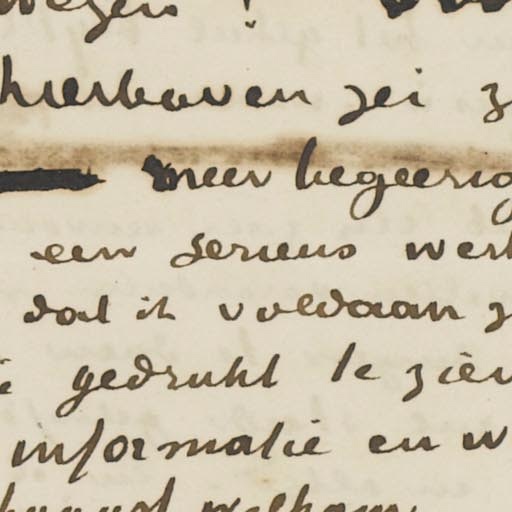 wegen !
hierboven zei z
meer begeerig
een serieus werk
dat ik voldaan z
gedrukt te zien
informatie en w
welkom